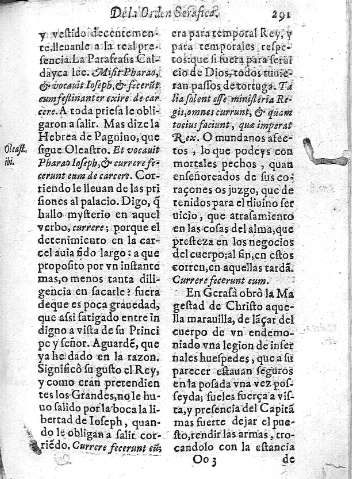 De la Orden Serafica.
291
y vestido decentemen-
te, lleuanle a la real pre-
sencia. La Parafrasis Cal-
dayca lee. Misit Pharao,
& vocauit Ioseph, & fecerūt
eum festinanter exire de car-
cere. A toda priesa le obli-
garon a salir. Mas dize la
Hebrea de Pagnino, que
sigue Oleastro. Et vocauit
Pharao Ioseph, & currere fe-
cerunt eum de carcere. Cor-
riendo le lleuan de las pri
siones al palacio. Digo, q̄
hallo mysterio en aquel
verbo, currere; porque el
detenimiento en la car-
cel auia sido largo: a que
proposito por vn instante
mas, o menos tanta dili-
gencia en sacarle? fuera
de que es poca grauedad,
que assi fatigado entre in
digno a vista de su Princi
pe y señor. Aguardē, que
ya he dado en la razon.
Significò su gusto el Rey,
y como eran pretendien
tes los Grandes, no le hu-
uo salido por la boca la li
bertad de Ioseph, quan-
do le obligan a salir cor-
riēdo. Currere fecerunt eū;
Oleast.
ibi.
era para temporal Rey, y
para temporales respe-
tos: que si fuera para serui
cio de Dios, todos tuuie-
ran passos de tortuga. Ta
lia solent esse ministeria Re-
gis, omnes currunt, & quam
tocius faciunt, quæ imperat
Rex. O mundanos afec-
tos, lo que podeys en
mortales pechos, quan
enseñoreados de sus co-
raçones os juzgo, que de-
tenidos para el diuino ser
uicio, que atrasamiento
en las cosas del alma, que
presteza en los negocios
del cuerpo; al fin, en estos
corren, en aquellas tardā.
Currere fecerunt eum.
En Gerasà obrò la Ma
gestad de Christo aque
lla marauilla, de lāçar del
cuerpo de vn endemo-
niado vna legion de infer
nales huespedes, que a su
parecer estauan seguros
en la posada vna vez pos-
seyda; fueles fuerça a vis-
ta, y presencia del Capitā
mas fuerte dejar el pue-
sto, rendir las armas, tro-
cando lo con la estancia
Oo 3
de